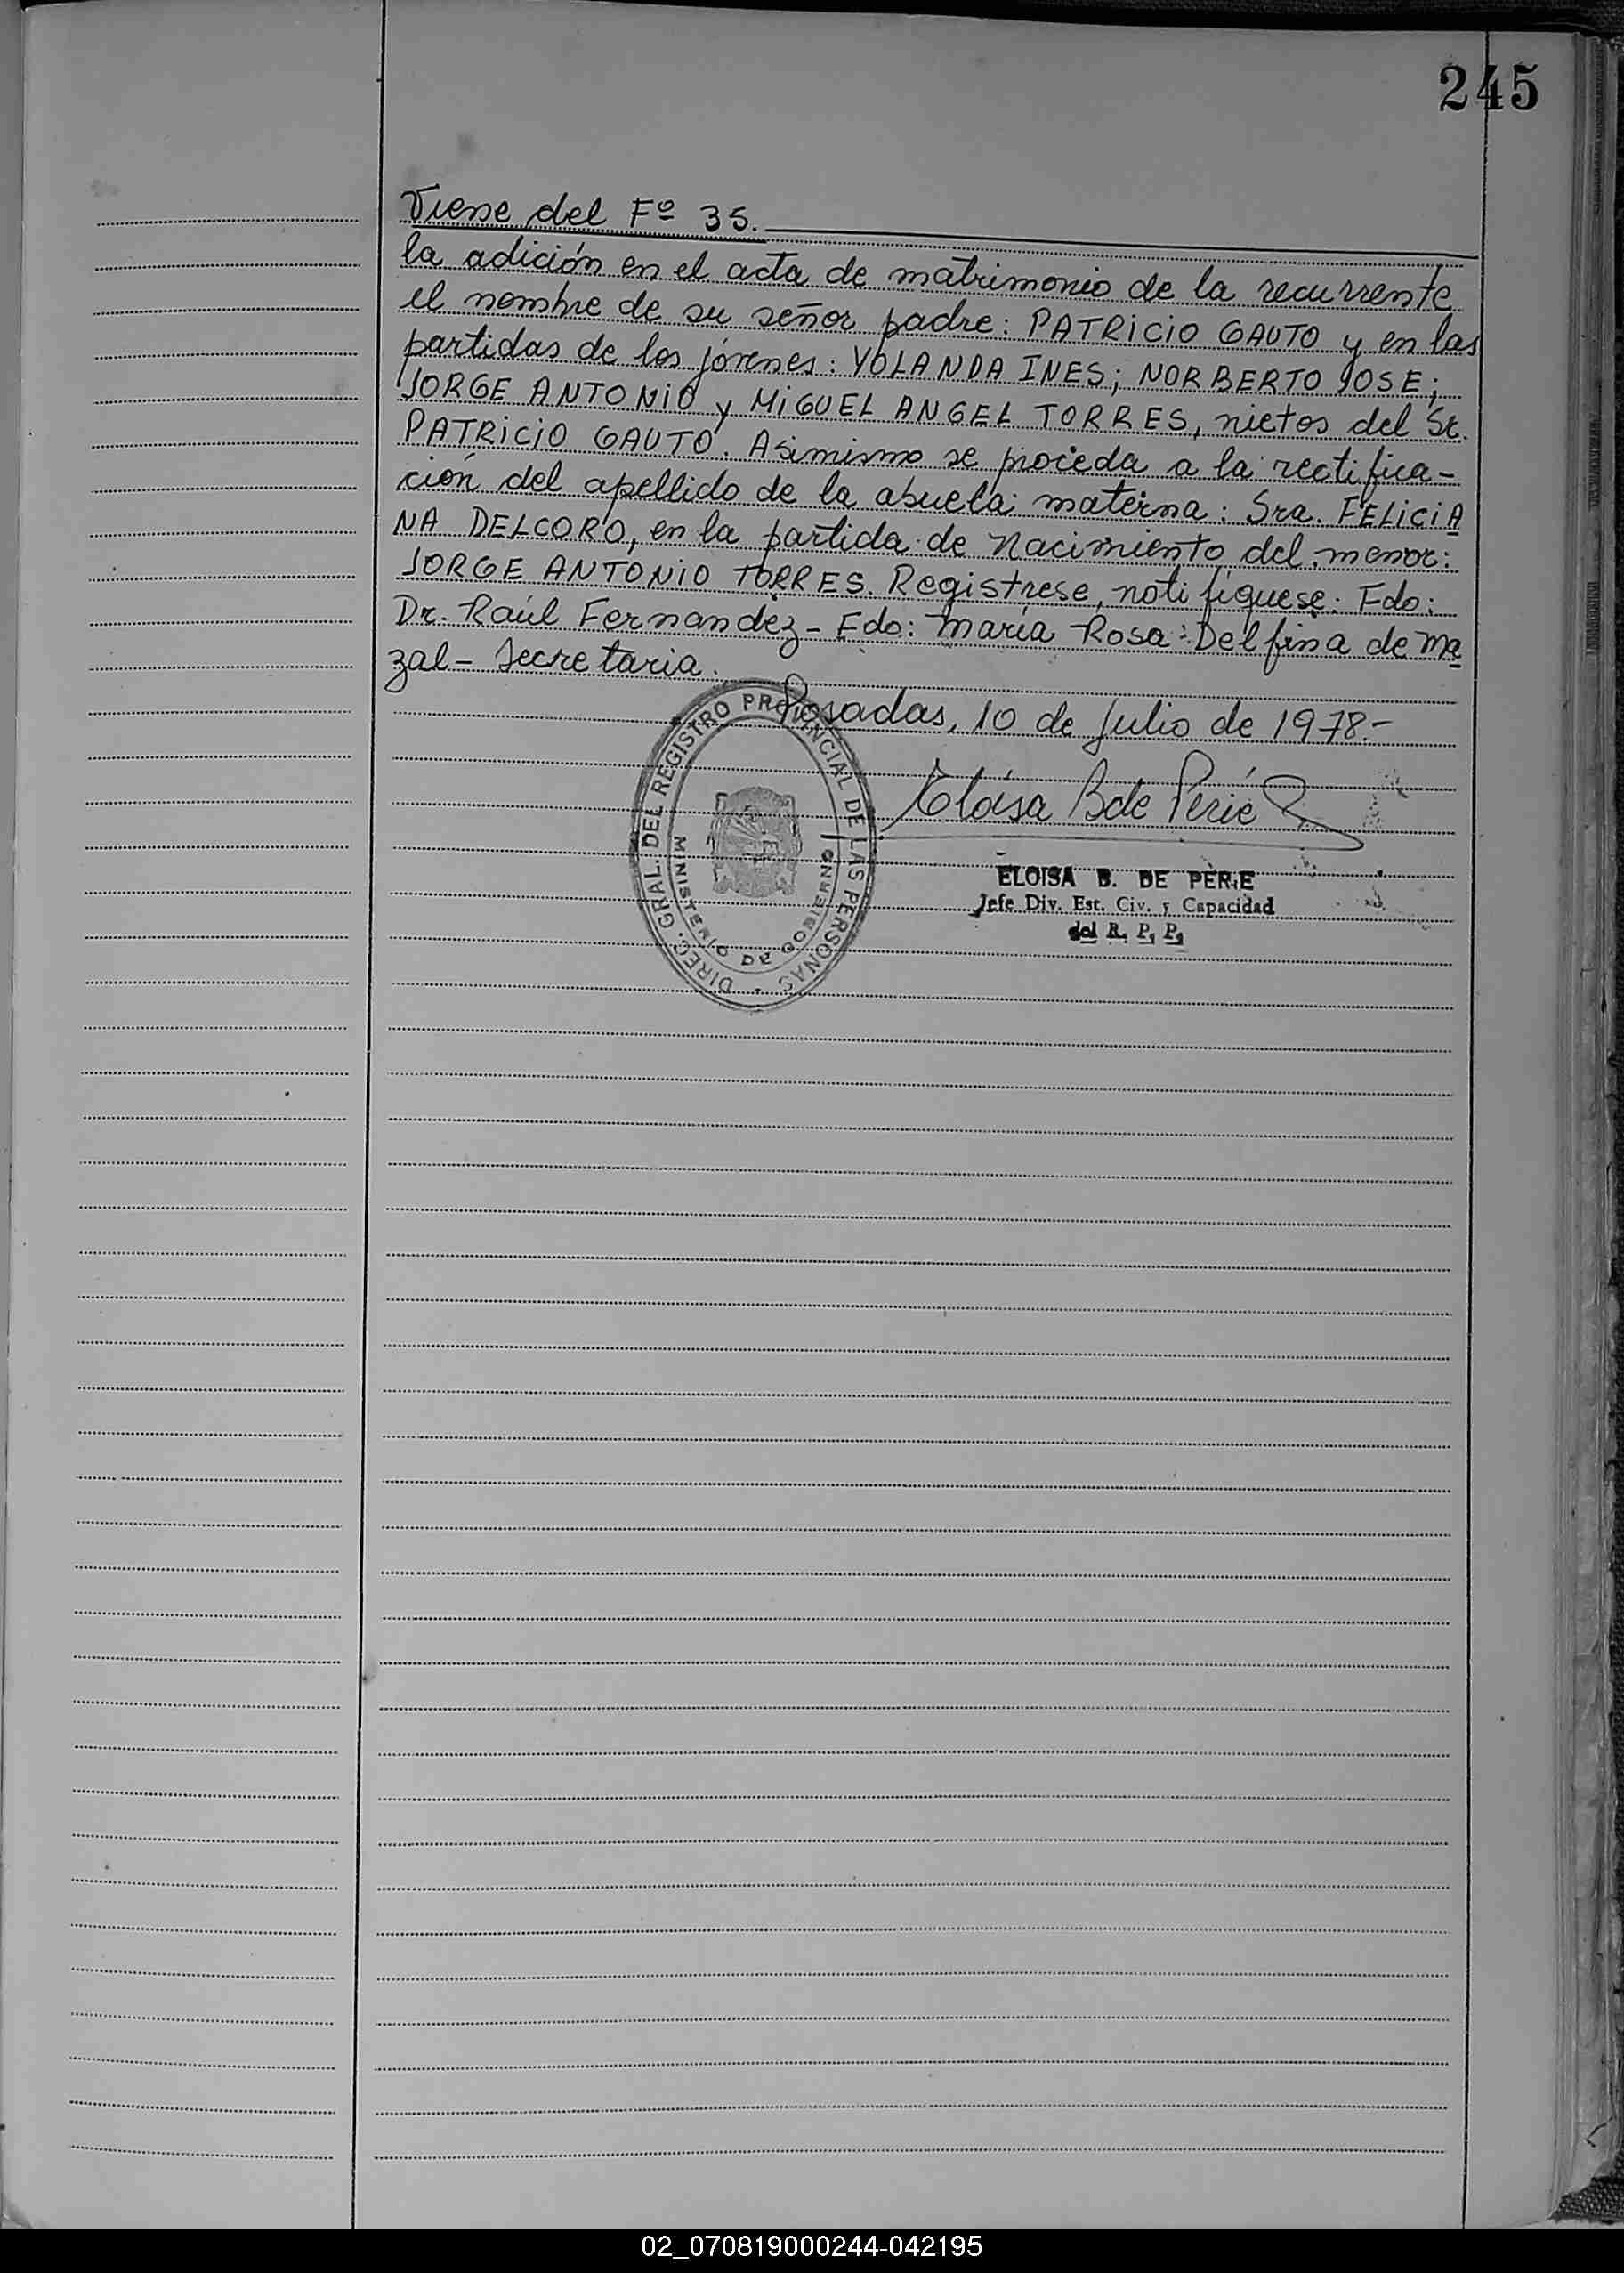 245
Viene del Fº 35.
la adición en el acta de matrimonio de la recurrente
el nombre de su señor padre: PATRICIO GAUTO y en las
partidas de los jóvenes: YOLANDA INES; NORBERTO JOSE;
JORGE ANTONIO y MIGUEL ANGEL TORRES, nietos del Sr.
PATRICIO GAUTO. Asimismo se proceda a la rectifica-
ción del apellido de la abuela materna: Sra. FELICIA
NA DELCORO, en la partida de Nacimiento del menor:
JORGE ANTONIO TORRES. Registrese, notifíquese. Fdo:
Dr. Raúl Fernandez - Fdo: María Rosa Delfina de Ma
zal - Secretaria.
Posadas, 10 de Julio de 1978.-
Eloisa B de Perié
ELOISA B. DE PERIE
Jefe Div. Est. Civ. y Capacidad
del R. P. P.
DIREC. GRAL. DEL REGISTRO PROVINCIAL DE LAS PERSONAS
MINISTERIO DE GOBIERNO
02_070819000244-042195